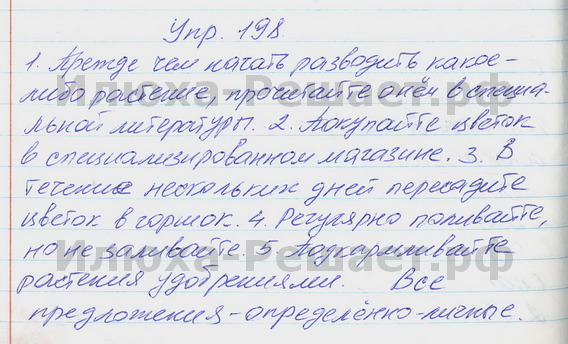 Упр. 198.
1. Прежде чем начать разводить какое-
либо растение, прочитайте о нём в специа-
льной литературы. 2. Покупайте цветок
в специализированном магазине. 3. В
течение нескольких дней пересадите
цветок в горшок. 4. Регулярно поливайте,
но не заливайте. 5. Подкармливайте
растения удобрениями. Все
предложения - определённо-личные.
Илюха-Решает.рф
Илюха-Решает.рф